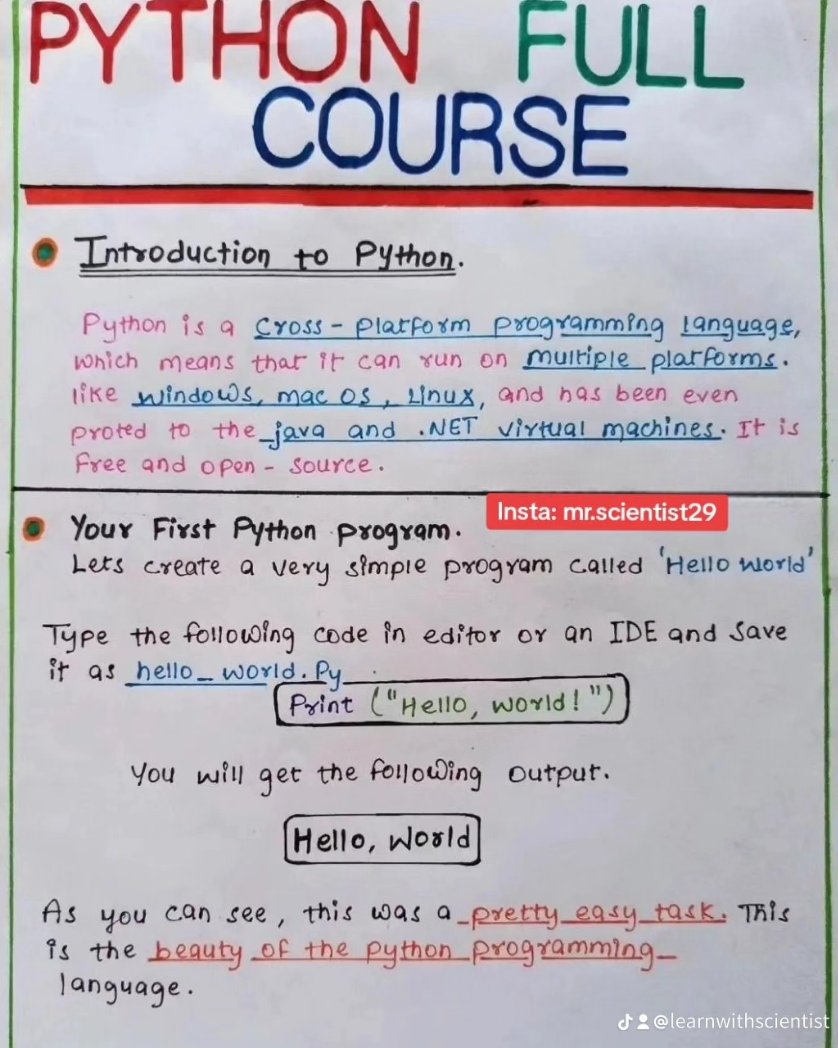 PYTHON FULL
COURSE
Introduction to Python.
Python is a cross-platform programming language,
which means that it can run on multiple platforms.
like windows, mac OS, Linux, and has been even
proted to the java and .NET virtual machines. It is
free and open-source.
Insta: mr.scientist29
Your First Python program.
Lets create a very simple program called 'Hello World'
Type the following code in editor or an IDE and save
it as hello_world.Py
Print ("Hello, world!")
You will get the following output.
Hello, World
As you can see, this was a pretty easy task. This
is the beauty of the python programming
language.
@learnwithscientist